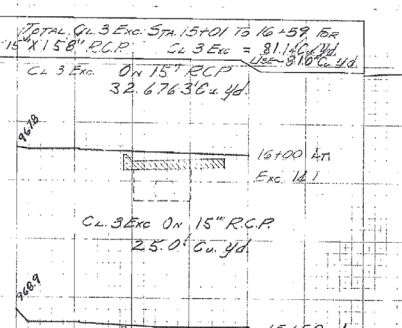 TOTAL CL. 3 EXC. STA. 15+01 TO 16+59 FOR
15" X 158' R.C.P. CL 3 EXC = 81.1 Cu. Yd.
USE 81.0 Cu. Yd.
CL 3 EXC. ON 15" RCP
32.6763 Cu. Yd.
967.8
16+00 LT.
EXC. 14.1
CL. 3 EXC ON 15" R.C.P.
25.0 Cu. Yd.
968.9